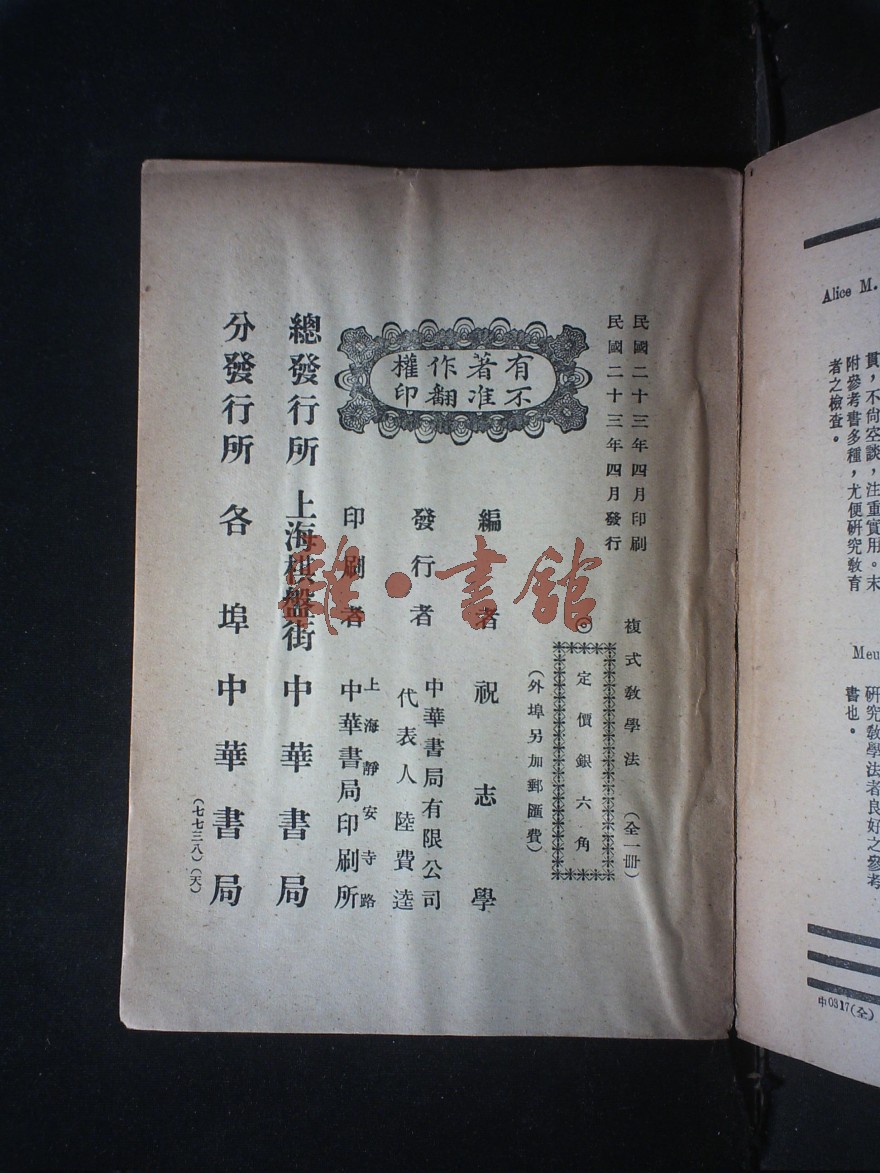 民國二十三年四月印刷
民國二十三年四月發行
複式教學法（全一冊）
◎定價銀六角
（外埠另加郵匯費）
有著作權
不准翻印
編者祝志學
發行者
中華書局有限公司
代表人陸費逵
印刷者
上海靜安寺路
中華書局印刷所
總發行所 上海棋盤街 中華書局
分發行所 各埠中華書局
（七七三八）（天）
雜·書館
Alice M.
貫，不尙空談，注重實用。末
附參考書多種，尤便研究教育
者之檢查。
Meu
研究教學法者良好之參考
書也。
中0317(全)